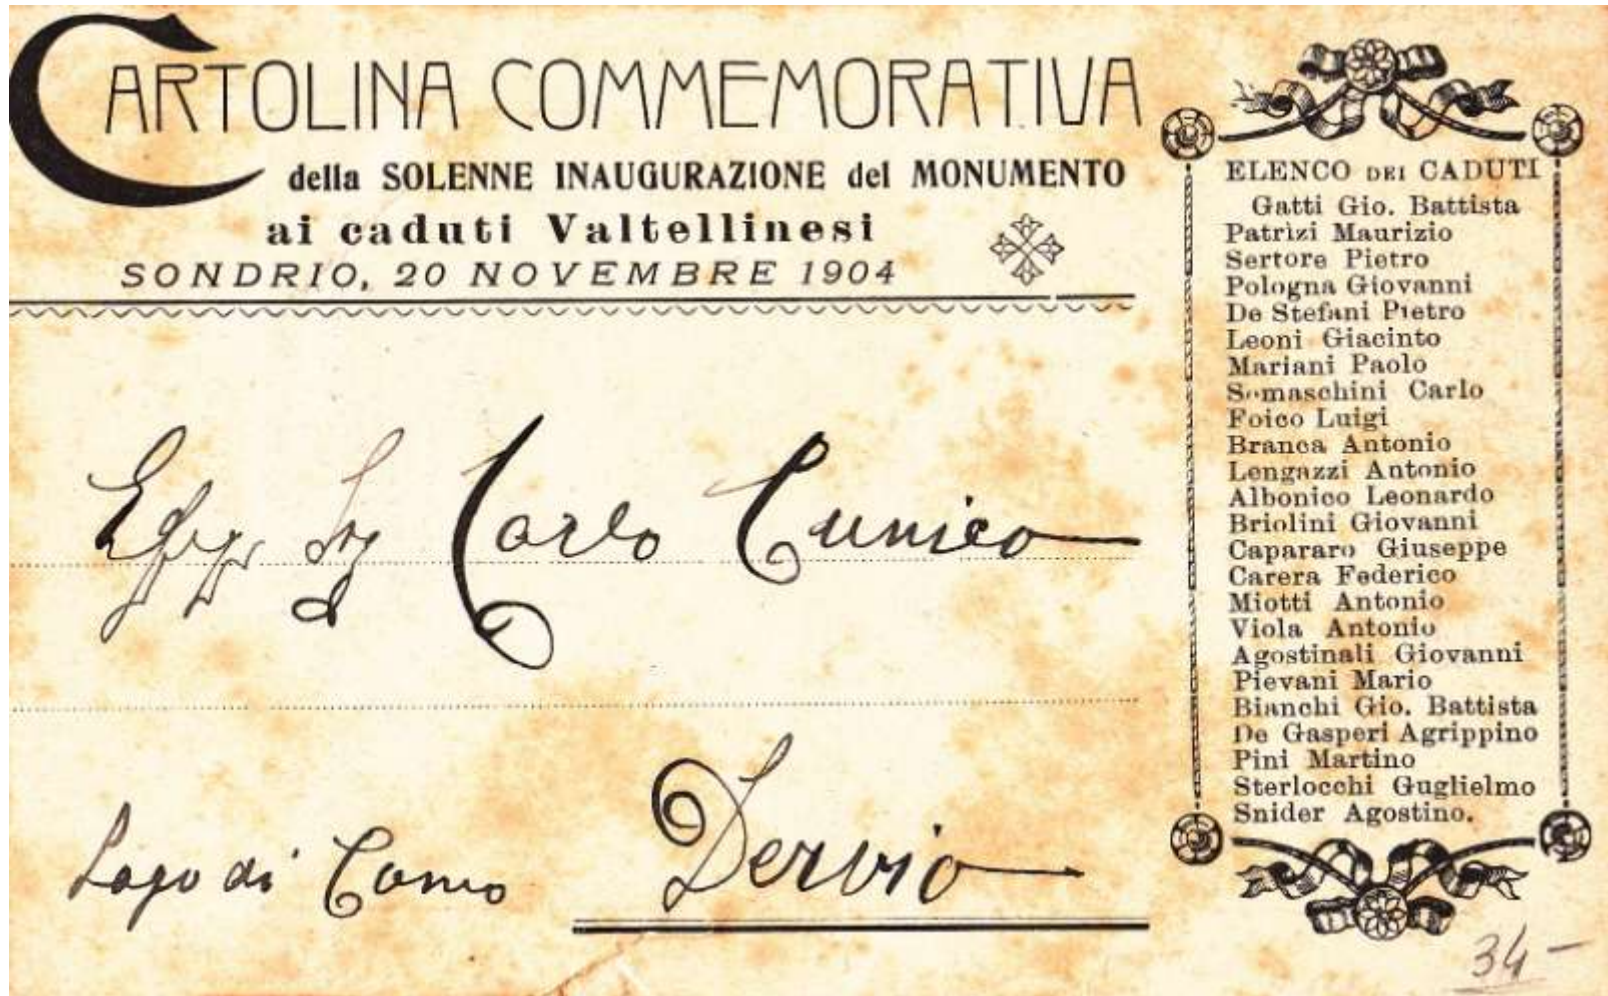 CARTOLINA COMMEMORATIVA
della SOLENNE INAUGURAZIONE del MONUMENTO
ai caduti Valtellinesi
SONDRIO, 20 NOVEMBRE 1904
Carlo Cunico
Lago di Como
Dervio
ELENCO DEI CADUTI
Gatti Gio. Battista
Patrizi Maurizio
Sertore Pietro
Pologna Giovanni
De Stefani Pietro
Leoni Giacinto
Mariani Paolo
Somaschini Carlo
Foico Luigi
Branca Antonio
Lengazzi Antonio
Albonico Leonardo
Briolini Giovanni
Capararo Giuseppe
Carera Federico
Miotti Antonio
Viola Antonio
Agostinali Giovanni
Pievani Mario
Bianchi Gio. Battista
De Gasperi Agrippino
Pini Martino
Sterlocchi Guglielmo
Snider Agostino.
34-